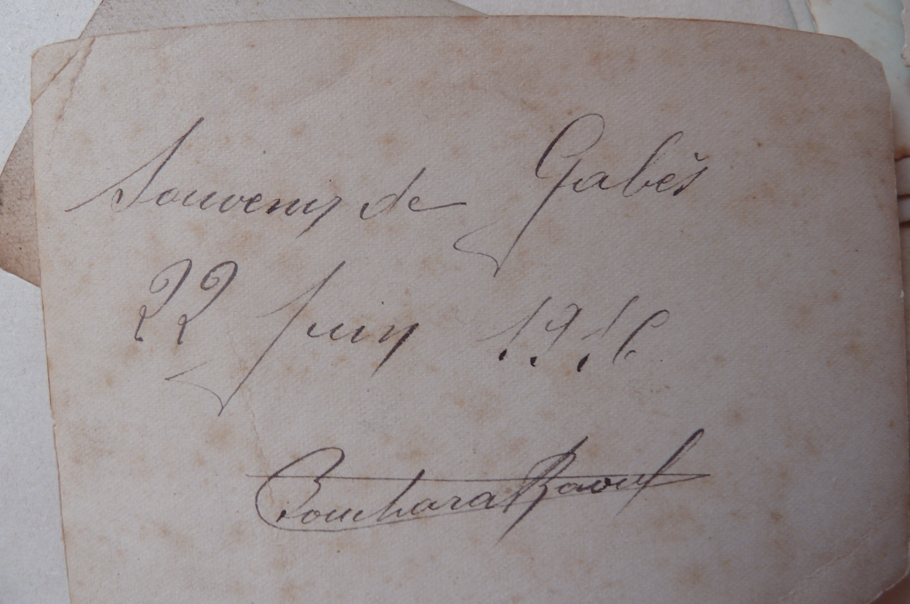 Souvenir de Gabès
22 Juin 1916
Bouchara Raoul